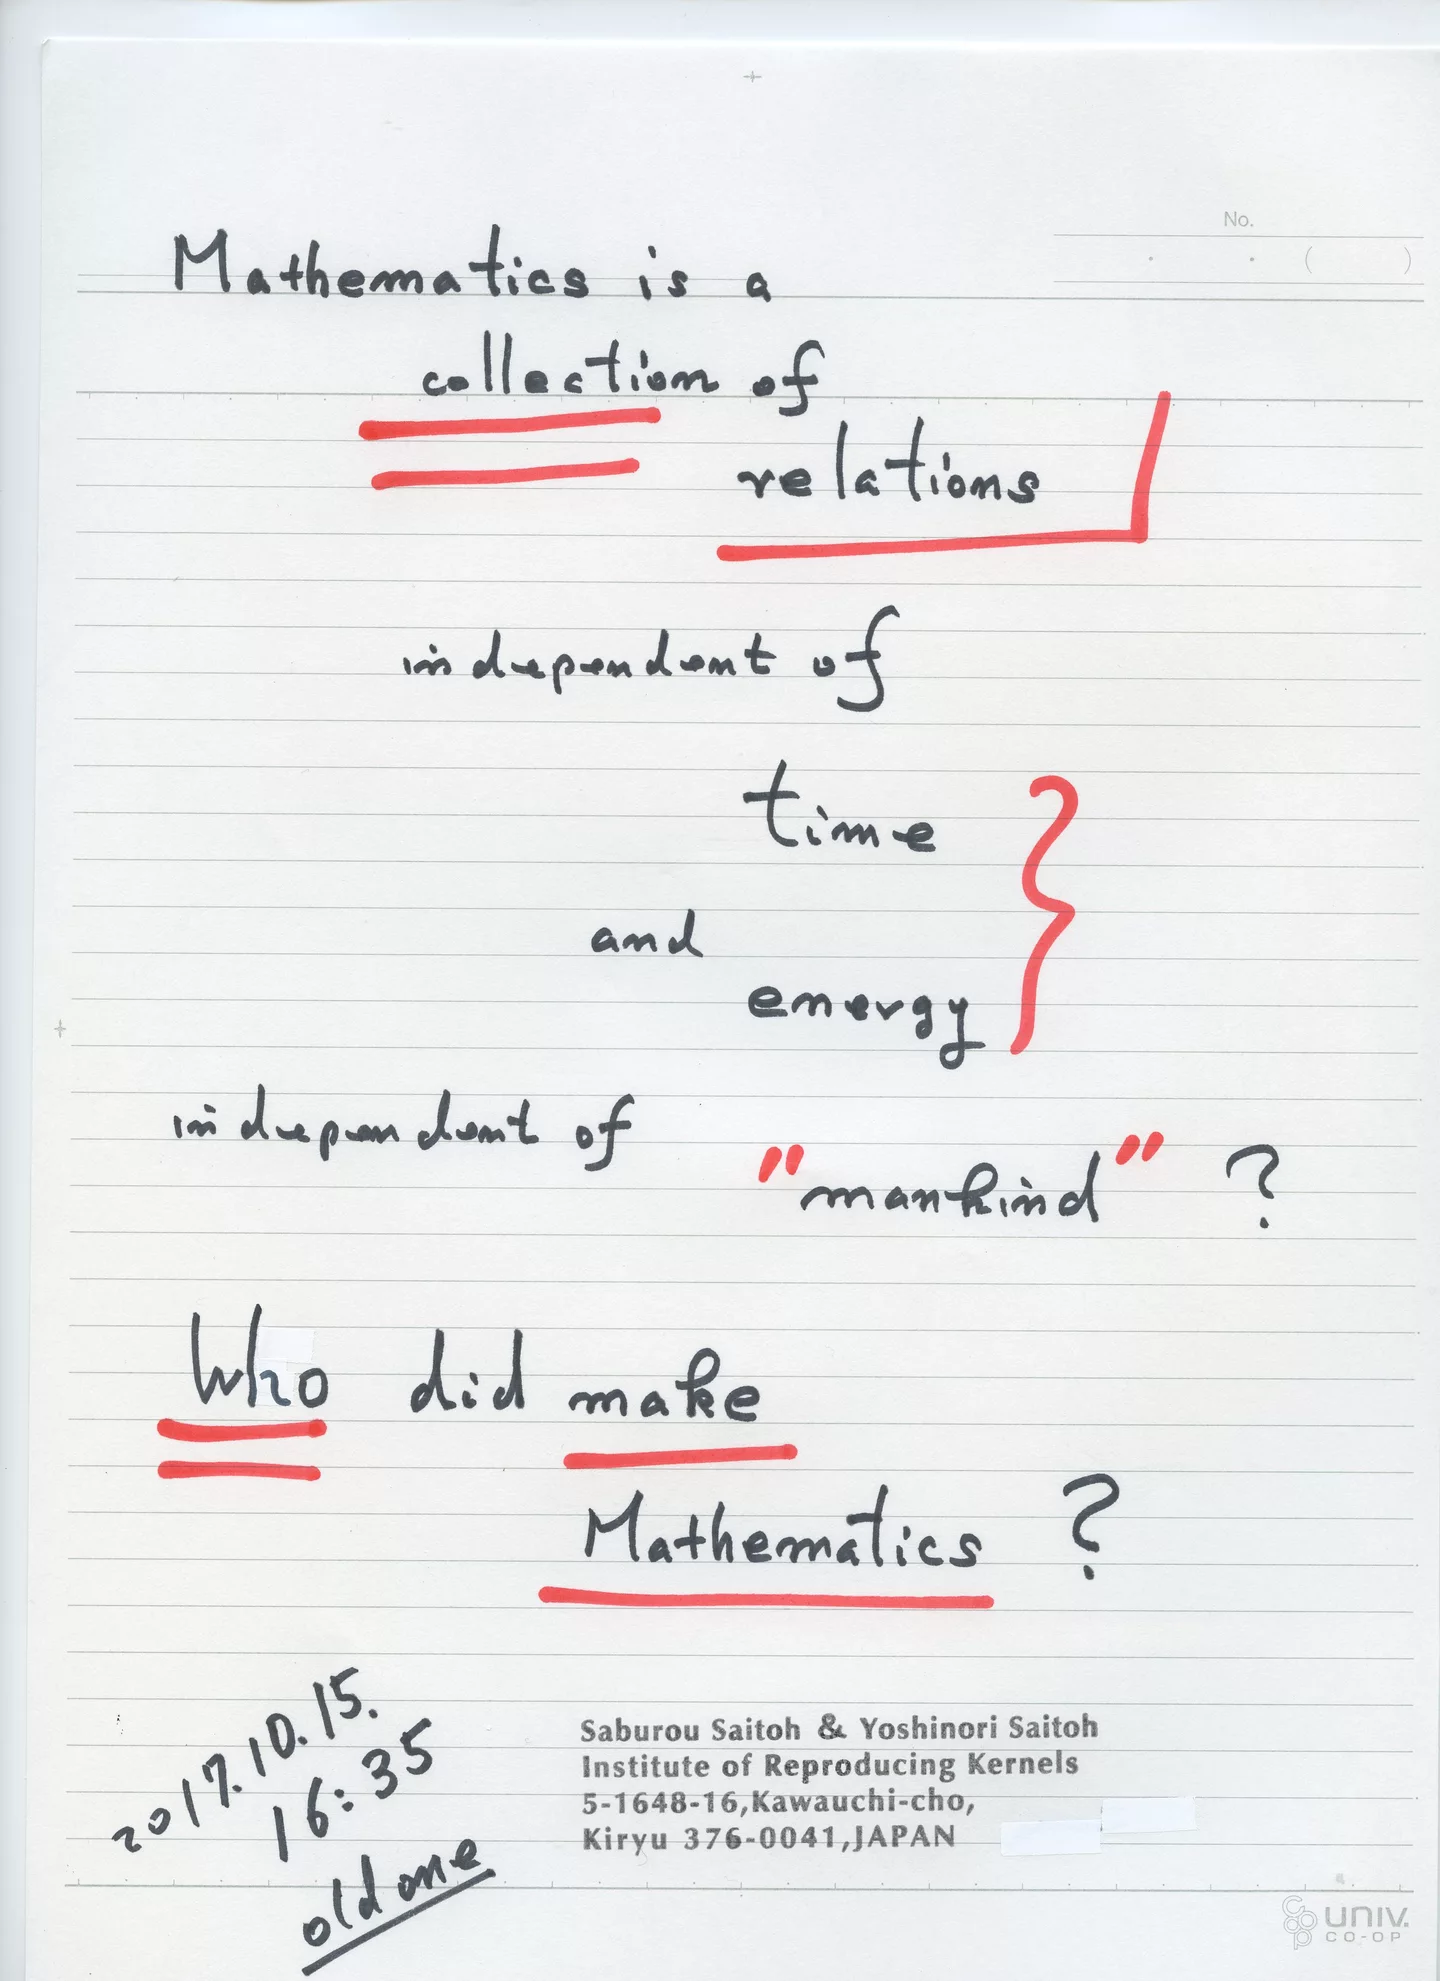 No.
( )
Mathematics is a
collection of
relations
independent of
time
and
energy
independent of
"mankind" ?
Who did make
Mathematics ?
2017.10.15.
16:35
old one
Saburou Saitoh & Yoshinori Saitoh
Institute of Reproducing Kernels
5-1648-16,Kawauchi-cho,
Kiryu 376-0041,JAPAN
UNIV.
CO-OP